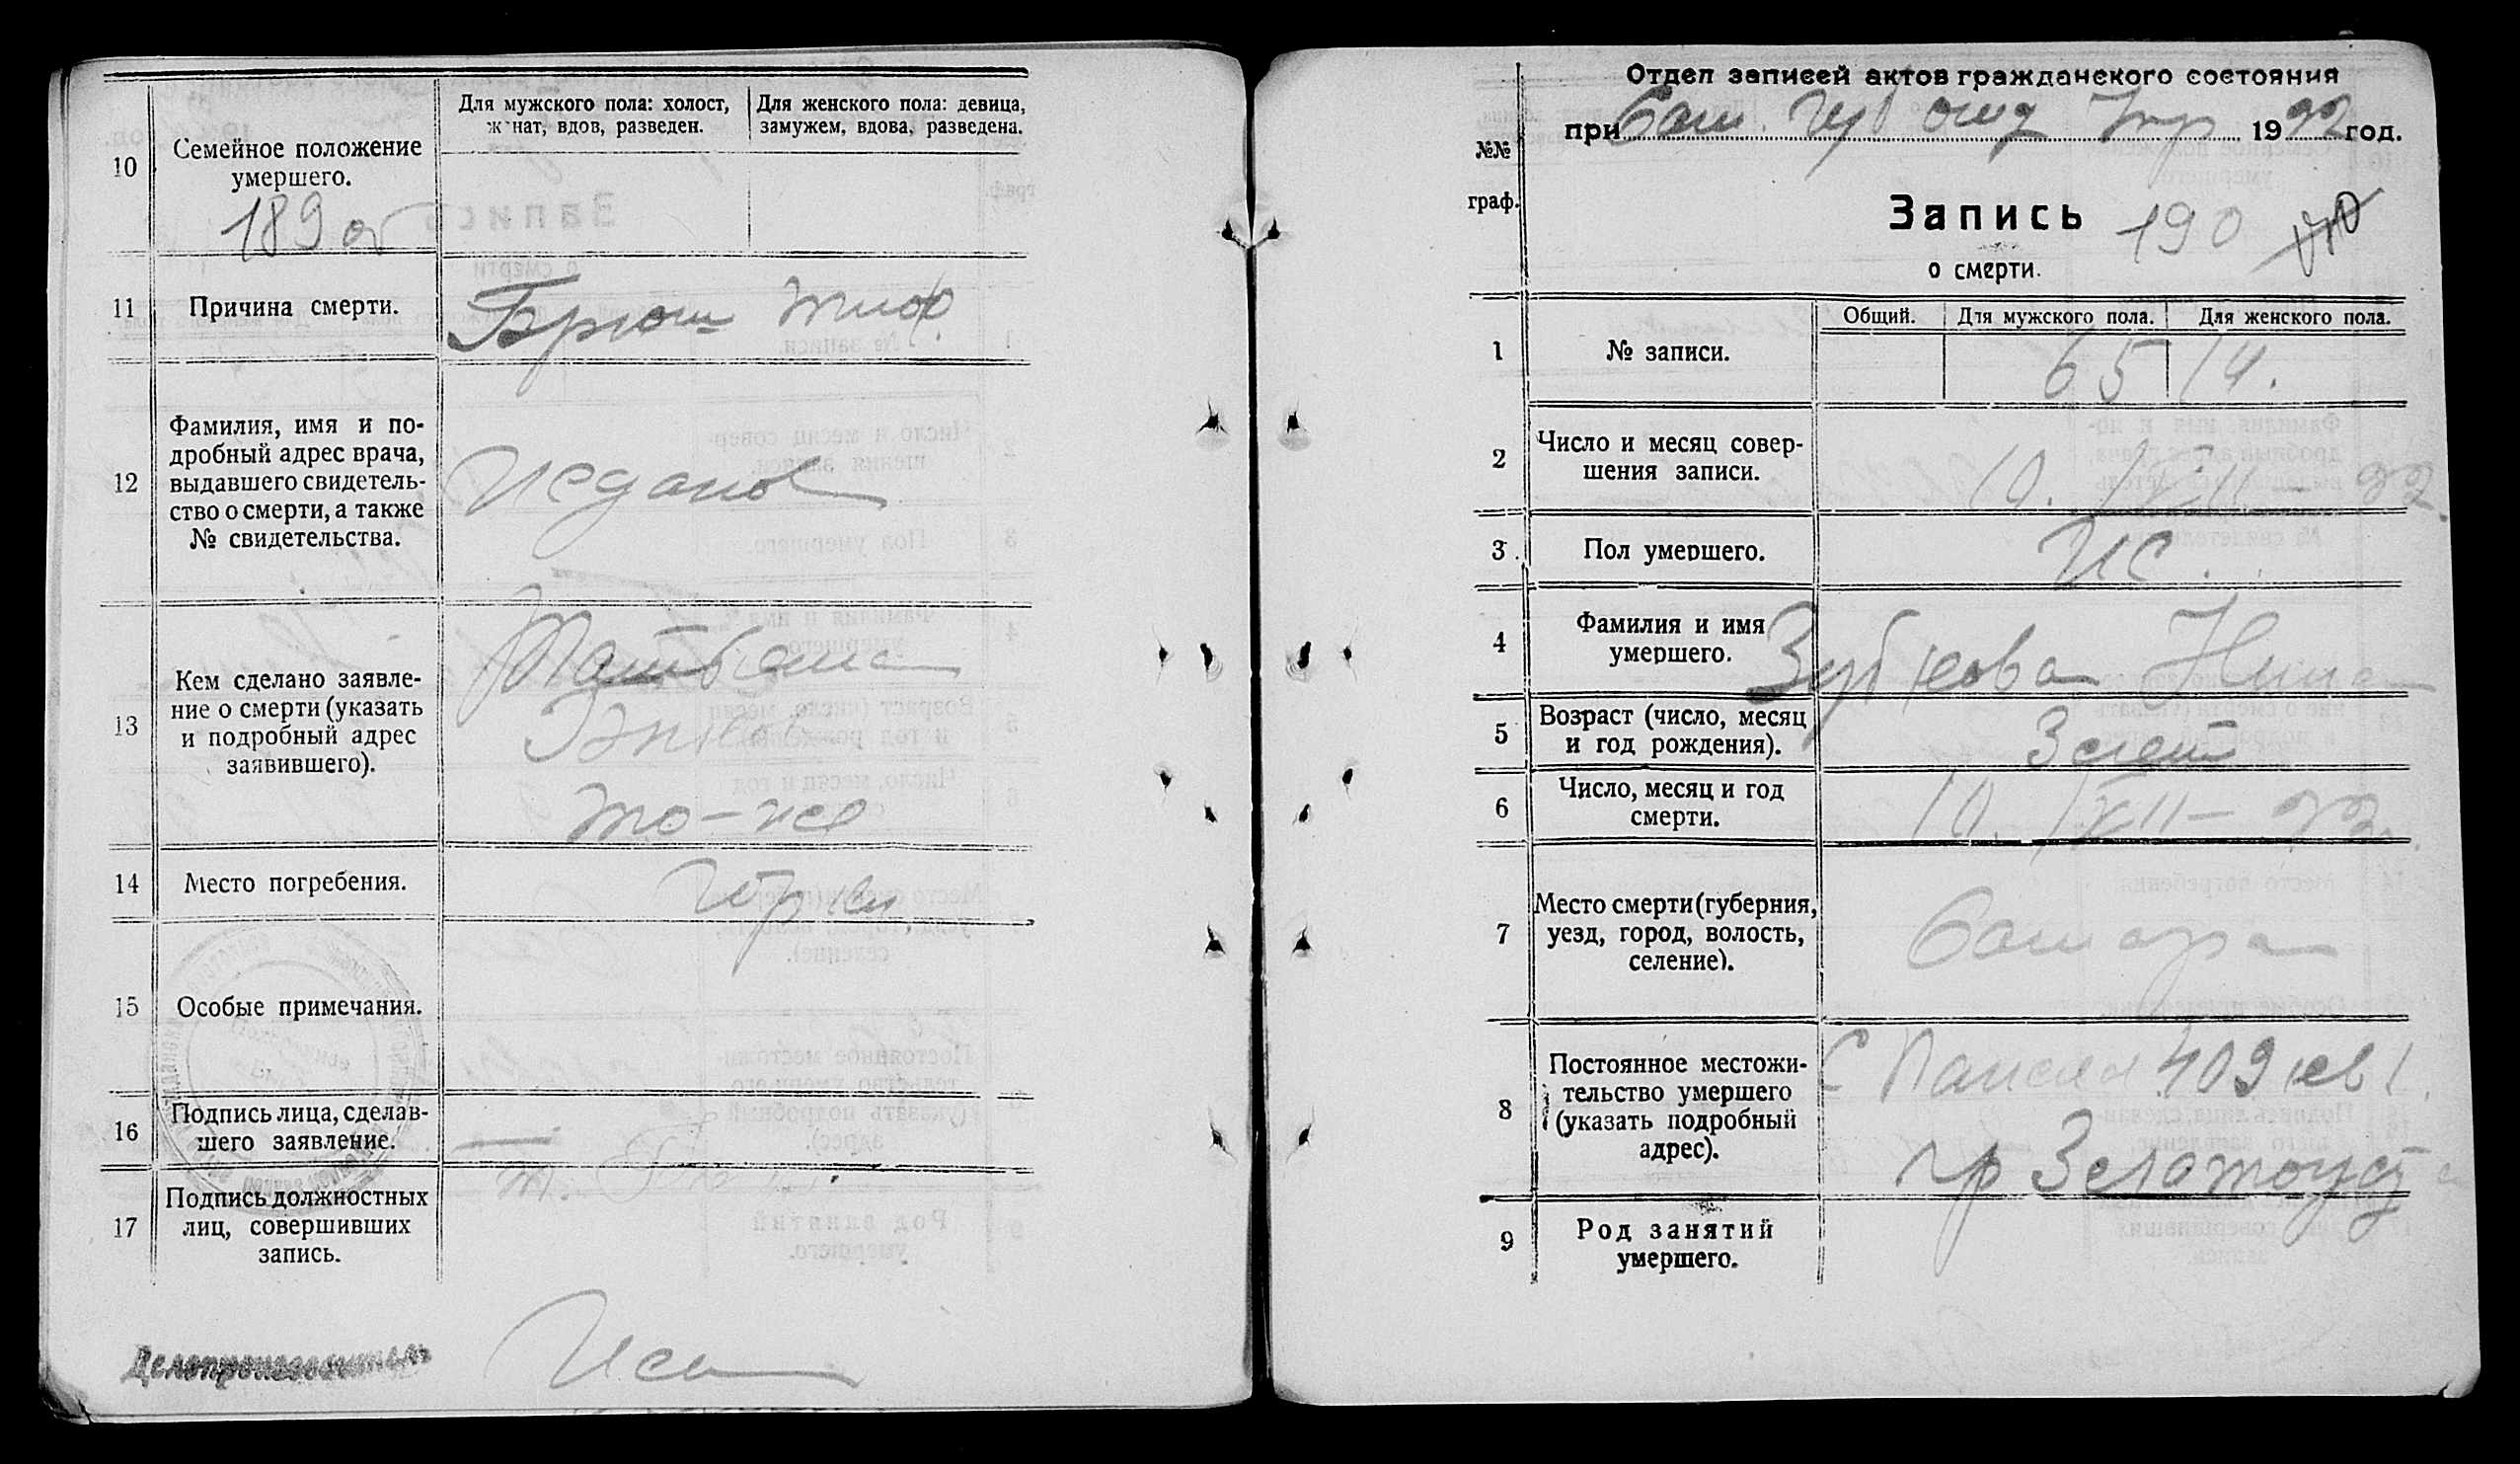 10
Семейное положение
умершего.
189 об
Для мужского пола: холост,
ж нат, вдов, разведен.
Для женского пола: девица,
замужем, вдова, разведена.
11
Причина смерти.
Брюш тиф.
12
Фамилия, имя и по-
дробный адрес врача,
выдавшего свидетель-
ство о смерти, а также
№ свидетельства.
13
Кем сделано заявле-
ние о смерти (указать
и подробный адрес
заявившего).
то-же
14
Место погребения.
15
Особые примечания.
16
Подпись лица, сделав-
шего заявление.
17
Подпись должностных
лиц, совершивших
запись.
Делопроизводитель
Отдел записей актов гражданского состояния
при Сам. Губ 1922 год.
№№
граф.
Запись 190
о смерти.
Общий. Для мужского пола. Для женского пола.
1
№ записи.
65 14.
2
Число и месяц совер-
шения записи.
10. XII - 22.
3.
Пол умершего.
Ж.
4
Фамилия и имя
умершего.
Зубкова Нина
5
Возраст (число, месяц
и год рождения).
3 лет
6
Число, месяц и год
смерти.
10. XII - 22.
7
Место смерти (губерния,
уезд, город, волость,
селение).
Самара
8
Постоянное местожи-
тельство умершего
(указать подробный
адрес).
409 кв 1.
гр Златоуст
9
Род занятий
умершего.